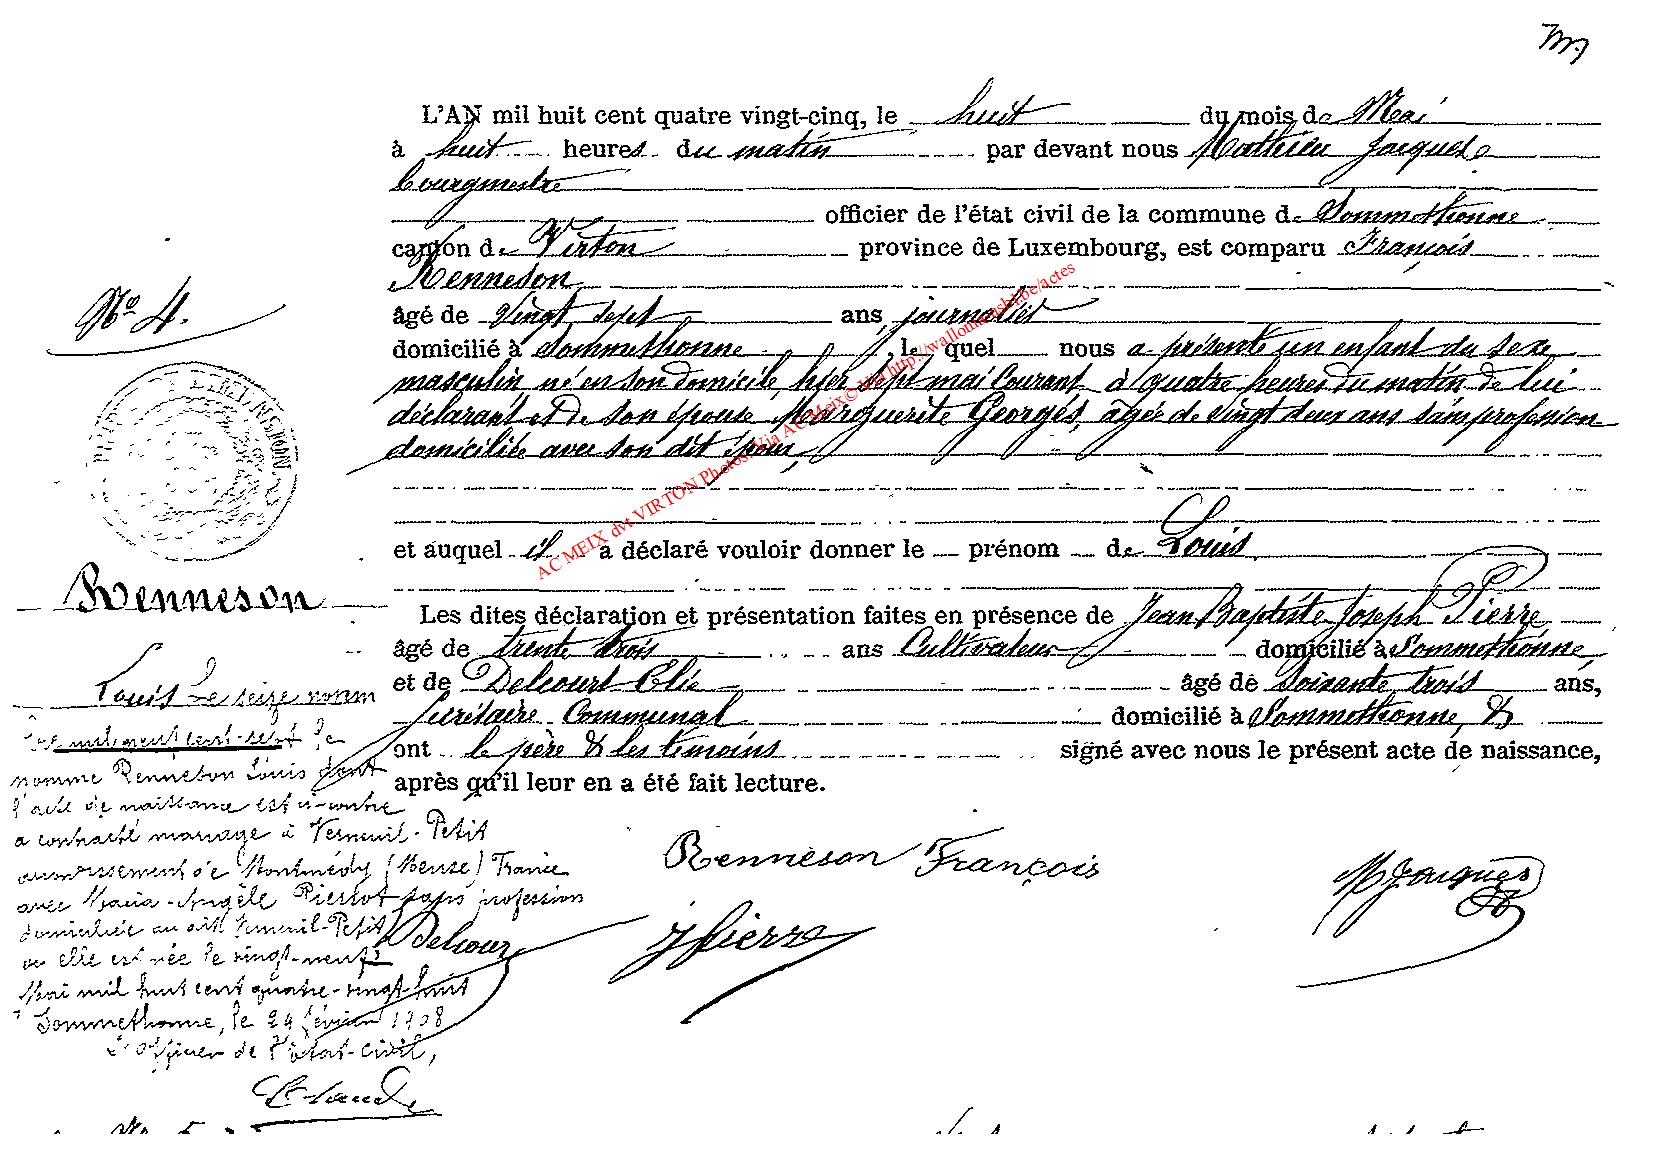 L'AN mil huit cent quatre vingt-cinq, le huit du mois de Mai
à huit heures du matin par devant nous Mathieu Jacques
bourgmestre
officier de l'état civil de la commune de Sommethonne
canton de Virton province de Luxembourg, est comparu François
Renneson
âgé de vingt sept ans journalier
domicilié à Sommethonne, lequel nous a présenté un enfant du sexe
masculin né en son domicile, hier sept mai courant à quatre heures du matin de lui
déclarant et de son épouse Marguerite Georges, âgée de vingt deux ans sans profession
domiciliée avec son dit époux,
et auquel il a déclaré vouloir donner le prénom de Louis
Les dites déclaration et présentation faites en présence de Jean Baptiste Joseph Pierre
âgé de trente trois ans Cultivateur domicilié à Sommethonne,
et de Delcourt Elie âgé de soixante trois ans,
Secrétaire Communal domicilié à Sommethonne, &
ont le père & les témoins signé avec nous le présent acte de naissance,
après qu'il leur en a été fait lecture.
Renneson François
M Jacques
JPierre
Delcour
No 4.
Renneson
Louis Le seize novem
bre mil neuf cent-sept le
nommé Renneson Louis dont
l'acte de naissance est ci-contre
a contracté mariage à Verneuil-Petit
arrondissement de Montmédy (Meuse) France
avec Maria-Angèle Pierrot sans profession
domiciliée au dit Verneuil-Petit
où elle est née le vingt-neuf
Mai mil huit cent quatre-vingt-huit
Sommethonne, le 29 février 1908
L'officier de l'Etat-civil,
AC MEIX dvt VIRTON Photos Via AC Meix© Via http://wallonica